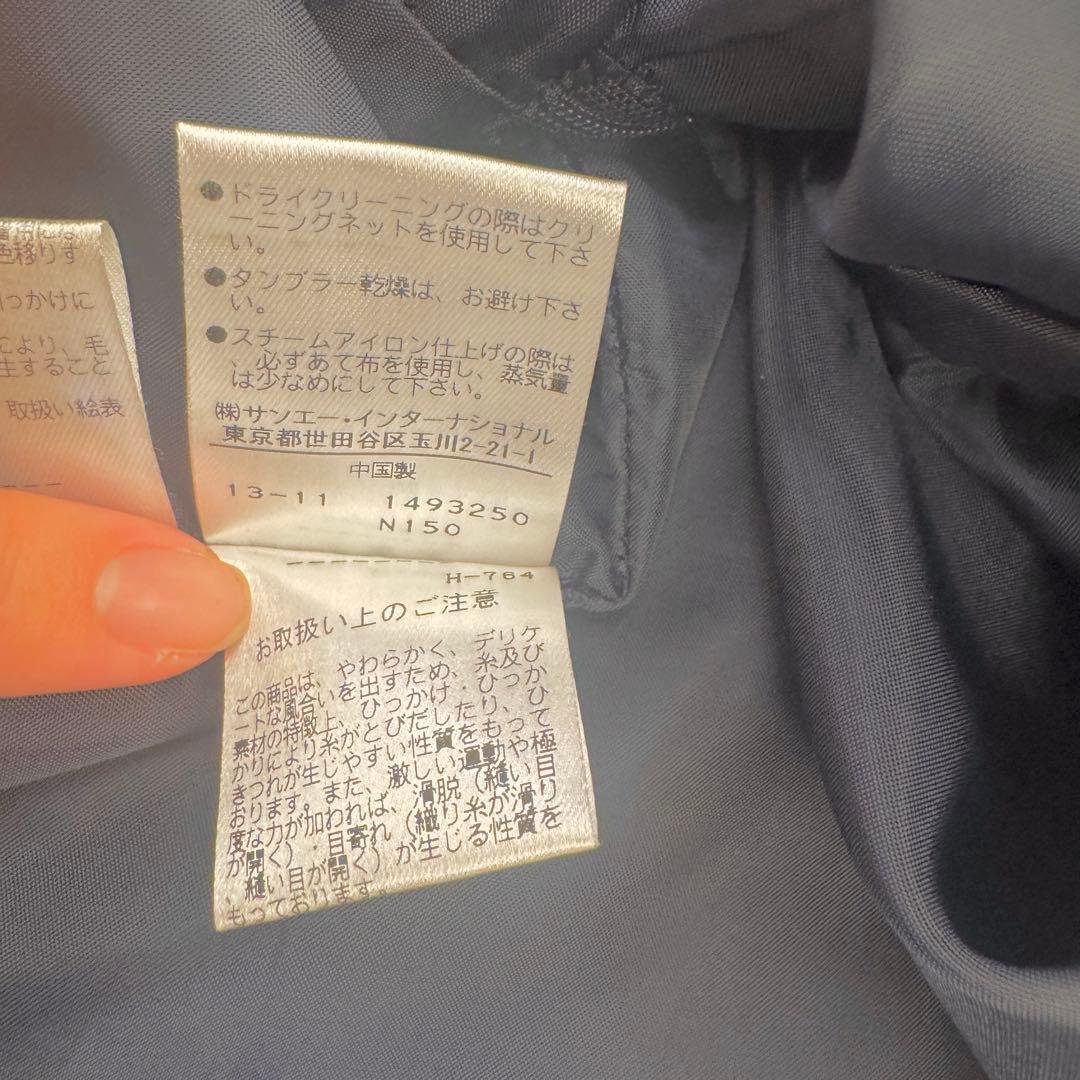 色移りす
っかけに
により、毛
生すること
取扱い絵表
●ドライクリーニングの際はクリ
ーニングネットを使用して下さ
い。
●タンブラー乾燥は、お避け下さ
い。
●スチームアイロン仕上げの際は
、必ずあて布を使用し、蒸気量
は少なめにして下さい。
(株)サンエー・インターナショナル
東京都世田谷区玉川2-21-1
中国製
13-11 1493250
N150
H-764
お取扱い上のご注意
この商品は、やわらかく、デリケ
ートな風合いを出すため、糸及び
素材の特徴上、ひっかけ・ひっか
かりにより糸がとびだしたり、ひ
きつれが生じやすい性質をもって
おります。また、激しい運動や極
度な力が加われば、滑脱(縫い目
が開く)・目寄れ(織り糸が滑り
、縫い目が開く)が生じる性質を
もっております。